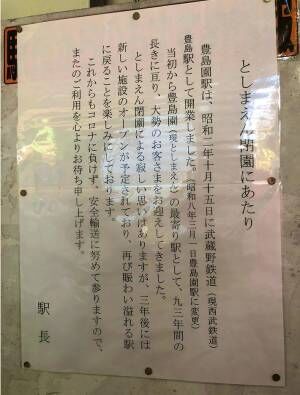 としまえん閉園にあたり
豊島園駅は、昭和二年十月十五日に武蔵野鉄道（現西武鉄道）
豊島駅として開業しました。（昭和八年三月一日豊島園駅に変更）
当初から豊島園（現としまえん）の最寄り駅として、九三年間の
長きに亘り、大勢のお客さまをお迎えしてきました。
としまえん閉園による寂しい思いはありますが、三年後には
新しい施設のオープンが予定されており、再び賑わい溢れる駅
に戻ることを楽しみにしております。
これからもコロナに負けず、安全輸送に努めて参りますので、
またのご利用を心よりお待ち申し上げます。
駅長